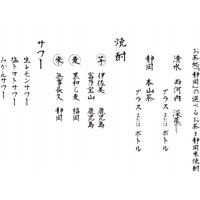 お茶処「静岡」の選べるお茶と静岡米焼酎
清水 両河内 深蒸し
グラス または ボトル
静岡 本山茶
グラス または ボトル
焼酎
芋 伊佐美 鹿児島
富乃宝山 鹿児島
麦 黒和ら麦 福岡
米 無事長久 静岡
サワー
生レモンサワー
塩トマトサワー
みかんサワー